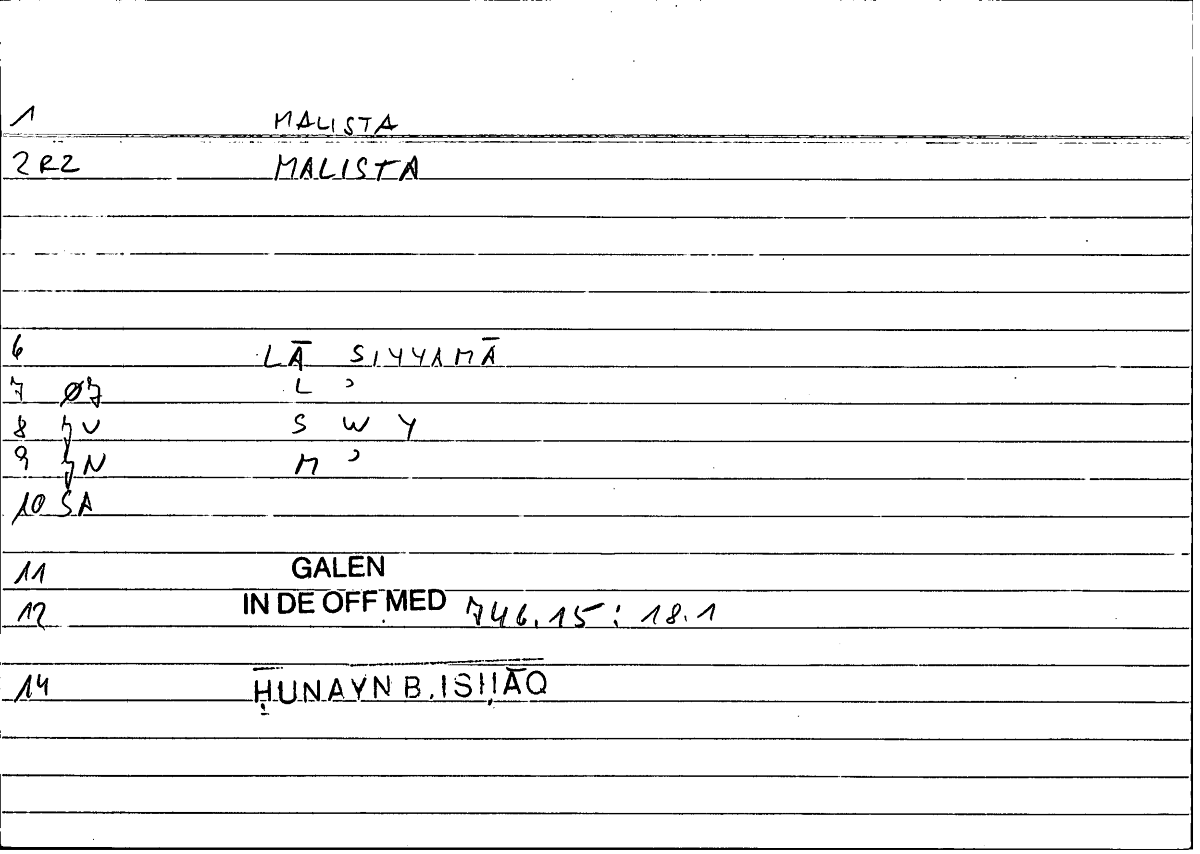 1 MALISTA
2 RZ MALISTA
6 LĀ SIYYAMĀ
7 Ø7 L ʾ
8 ŊU S W Y
9 ŊN M ʾ
10 SA
11 GALEN
12 IN DE OFF MED 746.15 : 18.1
14 ḤUNAYN B. ISḤĀQ